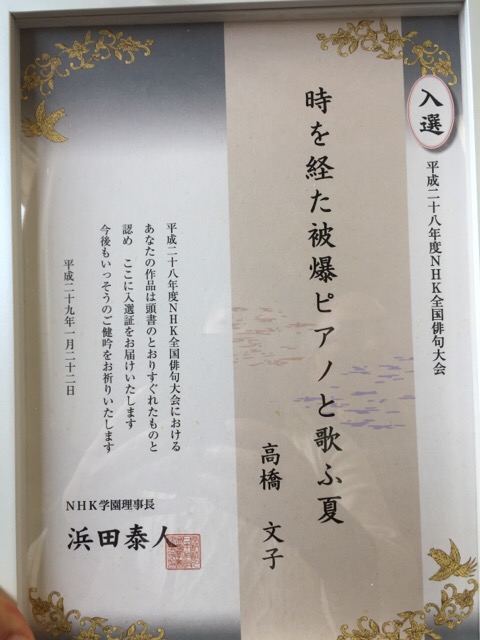 入選
平成二十八年度NHK全国俳句大会
時を経た被爆ピアノと歌ふ夏
高橋 文子
平成二十八年度NHK全国俳句大会における
あなたの作品は頭書のとおりすぐれたものと
認め ここに入選証をお届けいたします
今後もいっそうのご健吟をお祈りいたします
平成二十九年一月二十二日
NHK学園理事長
浜田泰人